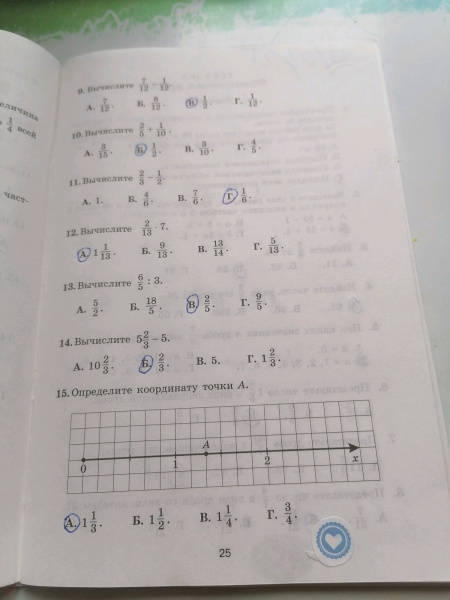 еличина
1/4 всей
част-
9. Вычислите 7/12 − 1/12.
А. 7/12. Б. 8/12. В. 1/2. Г. 1/12.
10. Вычислите 2/5 + 1/10.
А. 3/15. Б. 1/2. В. 3/10. Г. 4/5.
11. Вычислите 2/3 − 1/2.
А. 1. Б. 4/6. В. 7/6. Г. 1/6.
12. Вычислите 2/13 · 7.
А. 1 1/13. Б. 9/13. В. 13/14. Г. 5/13.
13. Вычислите 6/5 : 3.
А. 5/2. Б. 18/5. В. 2/5. Г. 9/5.
14. Вычислите 5 2/3 − 5.
А. 10 2/3. Б. 2/3. В. 5. Г. 1 2/3.
15. Определите координату точки A.
A
0 1 2 x
А. 1 1/3. Б. 1 1/2. В. 1 1/4. Г. 3/4.
25